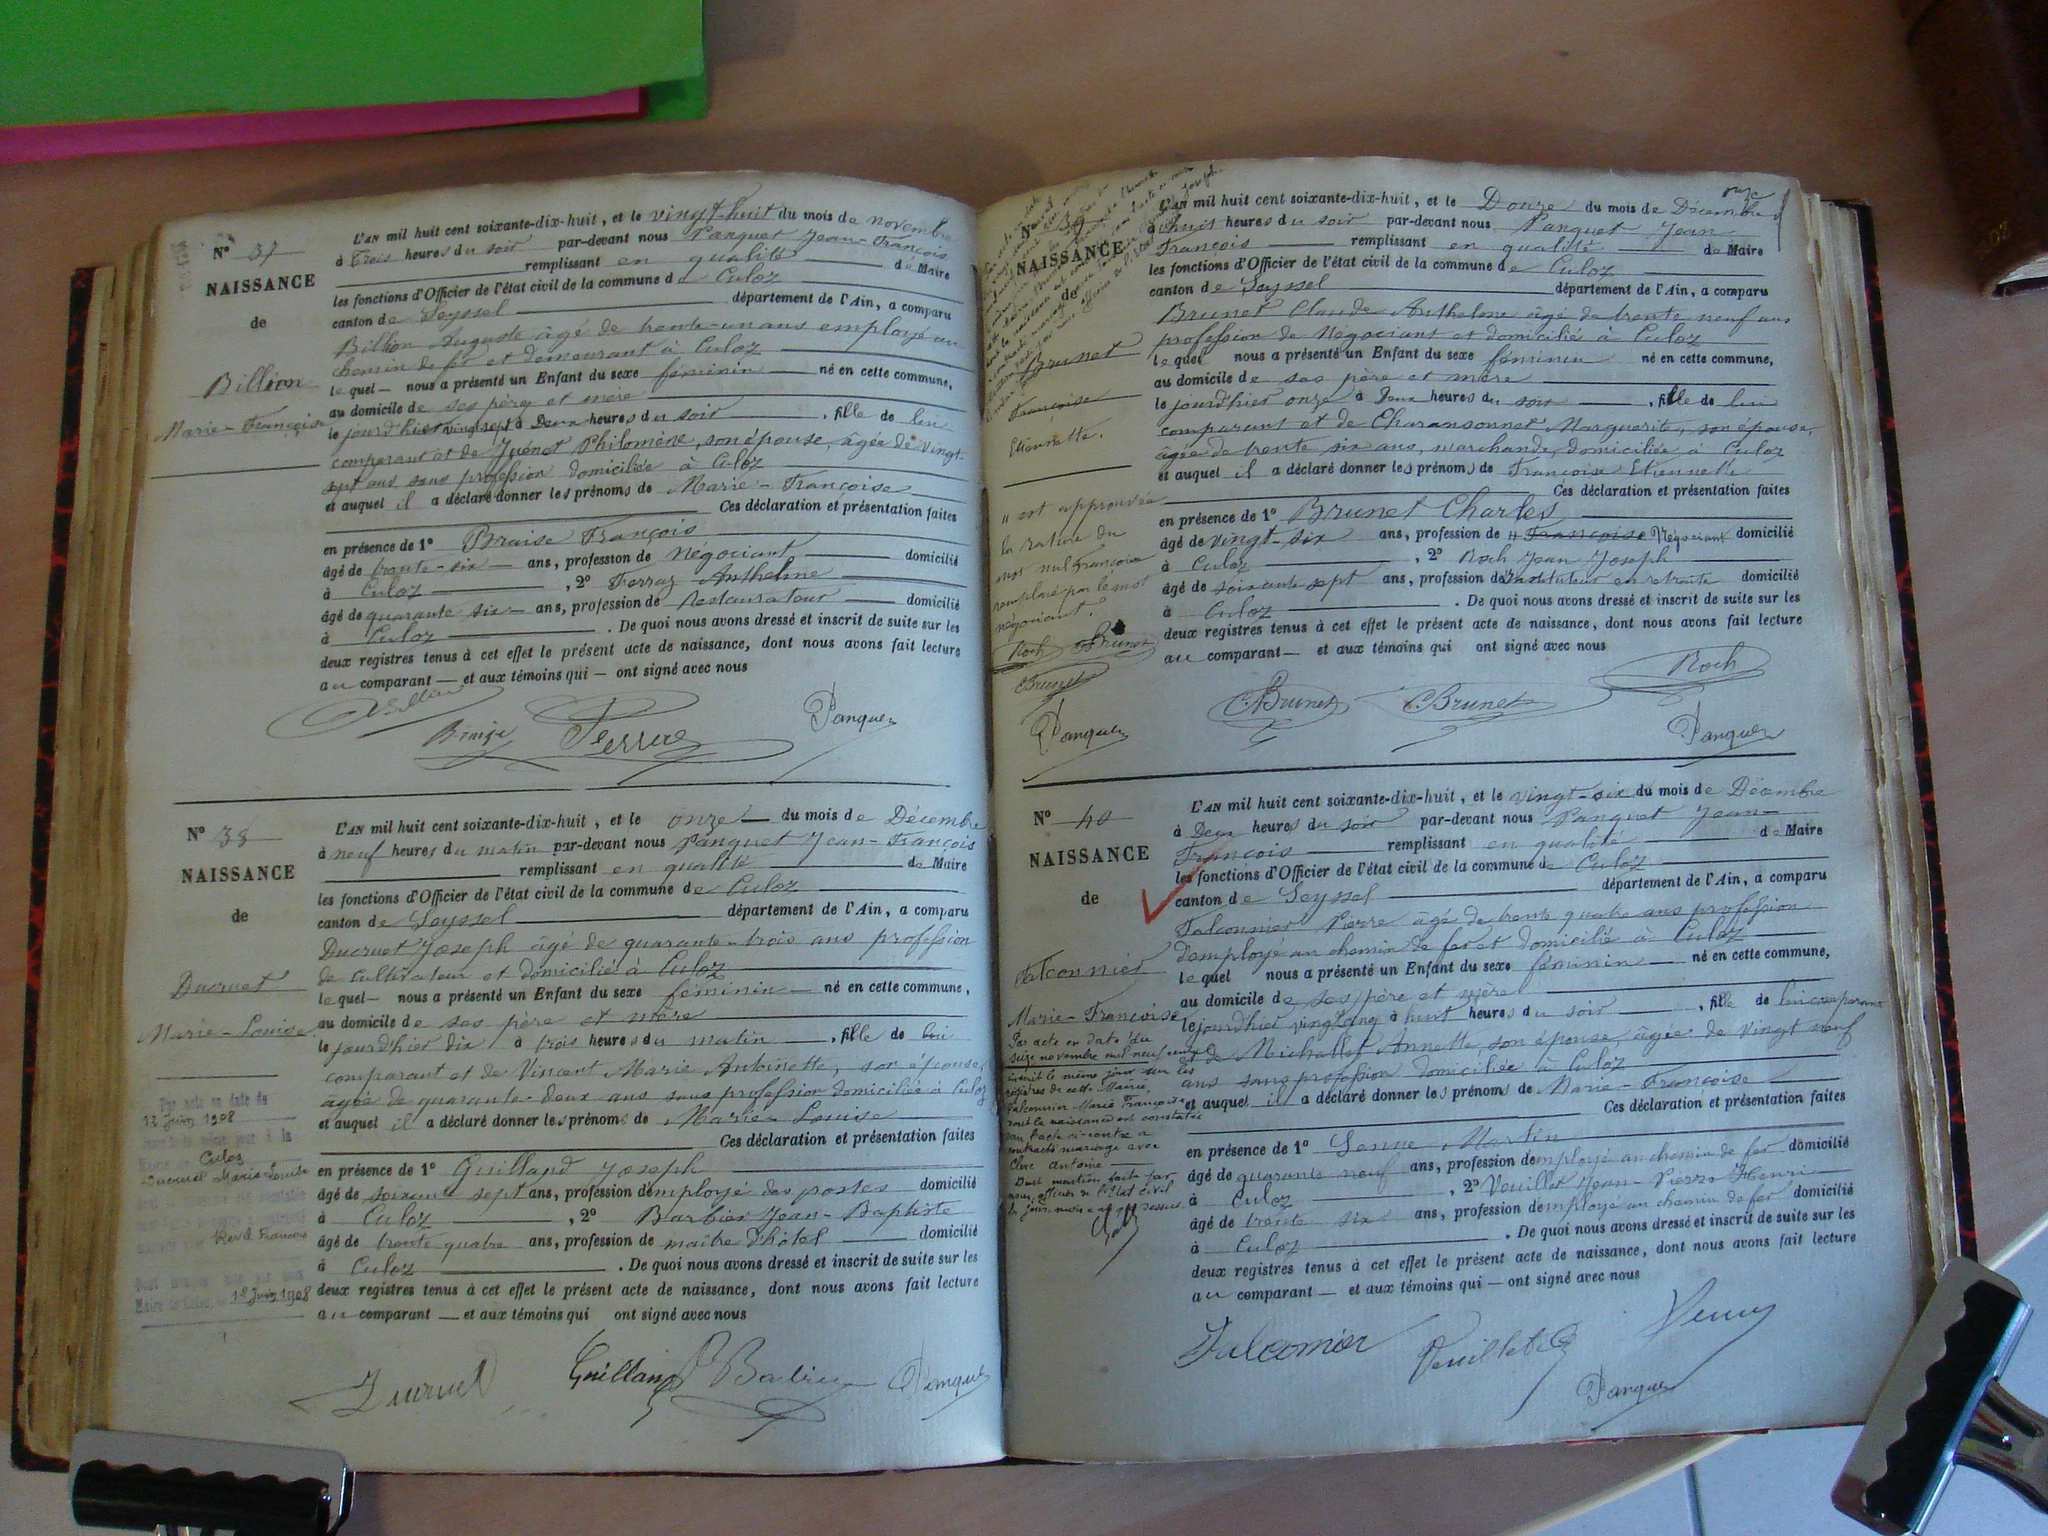 N° 37
NAISSANCE
de
Billion
Marie-Françoise
L'AN mil huit cent soixante-dix-huit, et le vingt-huit du mois de novembre
à Trois heures du soir par-devant nous Panquet Jean-François
remplissant en qualité de Maire
les fonctions d'Officier de l'état civil de la commune de Culoz
canton de Seyssel département de l'Ain, a comparu
Billion Auguste âgé de trente-un ans employé au
chemin de fer et demeurant à Culoz
lequel nous a présenté un Enfant du sexe féminin né en cette commune,
au domicile de ses père et mère
le jourd'hier vingt sept à Deux heures du soir, fille de lui
comparant et de Juénet Philomène, son épouse, âgée de vingt-
sept ans sans profession domiciliée à Culoz
et auquel il a déclaré donner les prénoms de Marie-Françoise
Ces déclaration et présentation faites
en présence de 1° Braise François
âgé de trente-six ans, profession de négociant domicilié
à Culoz, 2° Ferraz Anthelme
âgé de quarante six ans, profession de restaurateur domicilié
à Culoz. De quoi nous avons dressé et inscrit de suite sur les
deux registres tenus à cet effet le présent acte de naissance, dont nous avons fait lecture
au comparant et aux témoins qui ont signé avec nous
Braise Panquet
N° 38
NAISSANCE
de
Ducruet
Marie-Louise
Par acte en date du
13 Juin 1908
Culoz
Ducruet Marie Louise
François
18 Juin 1908
L'AN mil huit cent soixante-dix-huit, et le onze du mois de Décembre
à neuf heures du matin par-devant nous Panquet Jean-François
remplissant en qualité de Maire
les fonctions d'Officier de l'état civil de la commune de Culoz
canton de Seyssel département de l'Ain, a comparu
Ducruet Joseph âgé de quarante-trois ans profession
de cultivateur et domicilié à Culoz
lequel nous a présenté un Enfant du sexe féminin né en cette commune,
au domicile de ses père et mère
le jourd'hier dix à trois heures du matin, fille de lui
comparant et de Vincent Marie Antoinette, son épouse,
âgée de quarante-deux ans sans profession domiciliée à Culoz
et auquel il a déclaré donner les prénoms de Marie-Louise
Ces déclaration et présentation faites
en présence de 1° Guilland Joseph
âgé de soixante sept ans, profession d'employé des postes domicilié
à Culoz, 2° Barbier Jean-Baptiste
âgé de trente quatre ans, profession de maître d'hôtel domicilié
à Culoz. De quoi nous avons dressé et inscrit de suite sur les
deux registres tenus à cet effet le présent acte de naissance, dont nous avons fait lecture
au comparant et aux témoins qui ont signé avec nous
Ducruet Guilland Panquet
N° 39
NAISSANCE
de
Brunet
Françoise
Etiennette.
est approuvée
la rature du
mot nul Françoise
remplacé par le mot
négociant
Roch Brunet
Brunet
Panquet
onze
L'AN mil huit cent soixante-dix-huit, et le Douze du mois de Décembre
à huit heures du soir par-devant nous Panquet Jean
François remplissant en qualité de Maire
les fonctions d'Officier de l'état civil de la commune de Culoz
canton de Seyssel département de l'Ain, a comparu
Brunet Claude Anthelme âgé de trente neuf ans
profession de négociant et domicilié à Culoz
lequel nous a présenté un Enfant du sexe féminin né en cette commune,
au domicile de ses père et mère
le jourd'hier onze à Deux heures du soir, fille de lui
comparant et de Charansonnet Marguerite, son épouse,
âgée de trente six ans, marchande, domiciliée à Culoz
et auquel il a déclaré donner les prénoms de Françoise Etiennette
Ces déclaration et présentation faites
en présence de 1° Brunet Charles
âgé de vingt-six ans, profession de Françoise Négociant domicilié
à Culoz, 2° Roch Jean Joseph
âgé de soixante sept ans, profession d'instituteur en retraite domicilié
à Culoz. De quoi nous avons dressé et inscrit de suite sur les
deux registres tenus à cet effet le présent acte de naissance, dont nous avons fait lecture
au comparant et aux témoins qui ont signé avec nous
Brunet Brunet Roch
Panquet
N° 40
NAISSANCE
de
Falconnier
Marie-Françoise
Par acte en date du
seize novembre mil neuf cent
inscrit le même jour sur les
registres de cette Mairie,
Falconnier Marie Françoise
dont la naissance est constatée
par l'acte ci-contre a
contracté mariage avec
Clerc Antoine
Dont mention faite par
nous, officier de l'Etat civil
L'AN mil huit cent soixante-dix-huit, et le vingt-six du mois de Décembre
à Deux heures du soir par-devant nous Panquet Jean-
François remplissant en qualité de Maire
les fonctions d'Officier de l'état civil de la commune de Culoz
canton de Seyssel département de l'Ain, a comparu
Falconnier Pierre âgé de trente quatre ans profession
d'employé au chemin de fer et domicilié à Culoz
lequel nous a présenté un Enfant du sexe féminin né en cette commune,
au domicile de ses père et mère
le jourd'hier vingt cinq à huit heures du soir, fille de lui comparant
et de Michallet Annette, son épouse, âgée de vingt neuf
ans sans profession domiciliée à Culoz
et auquel il a déclaré donner les prénoms de Marie-Françoise
Ces déclaration et présentation faites
en présence de 1° Martin
âgé de quarante neuf ans, profession d'employé au chemin de fer domicilié
à Culoz, 2° Veuillet Jean-Pierre Henri
âgé de trente six ans, profession d'employé au chemin de fer domicilié
à Culoz. De quoi nous avons dressé et inscrit de suite sur les
deux registres tenus à cet effet le présent acte de naissance, dont nous avons fait lecture
au comparant et aux témoins qui ont signé avec nous
Falconnier Veuillet
Panquet